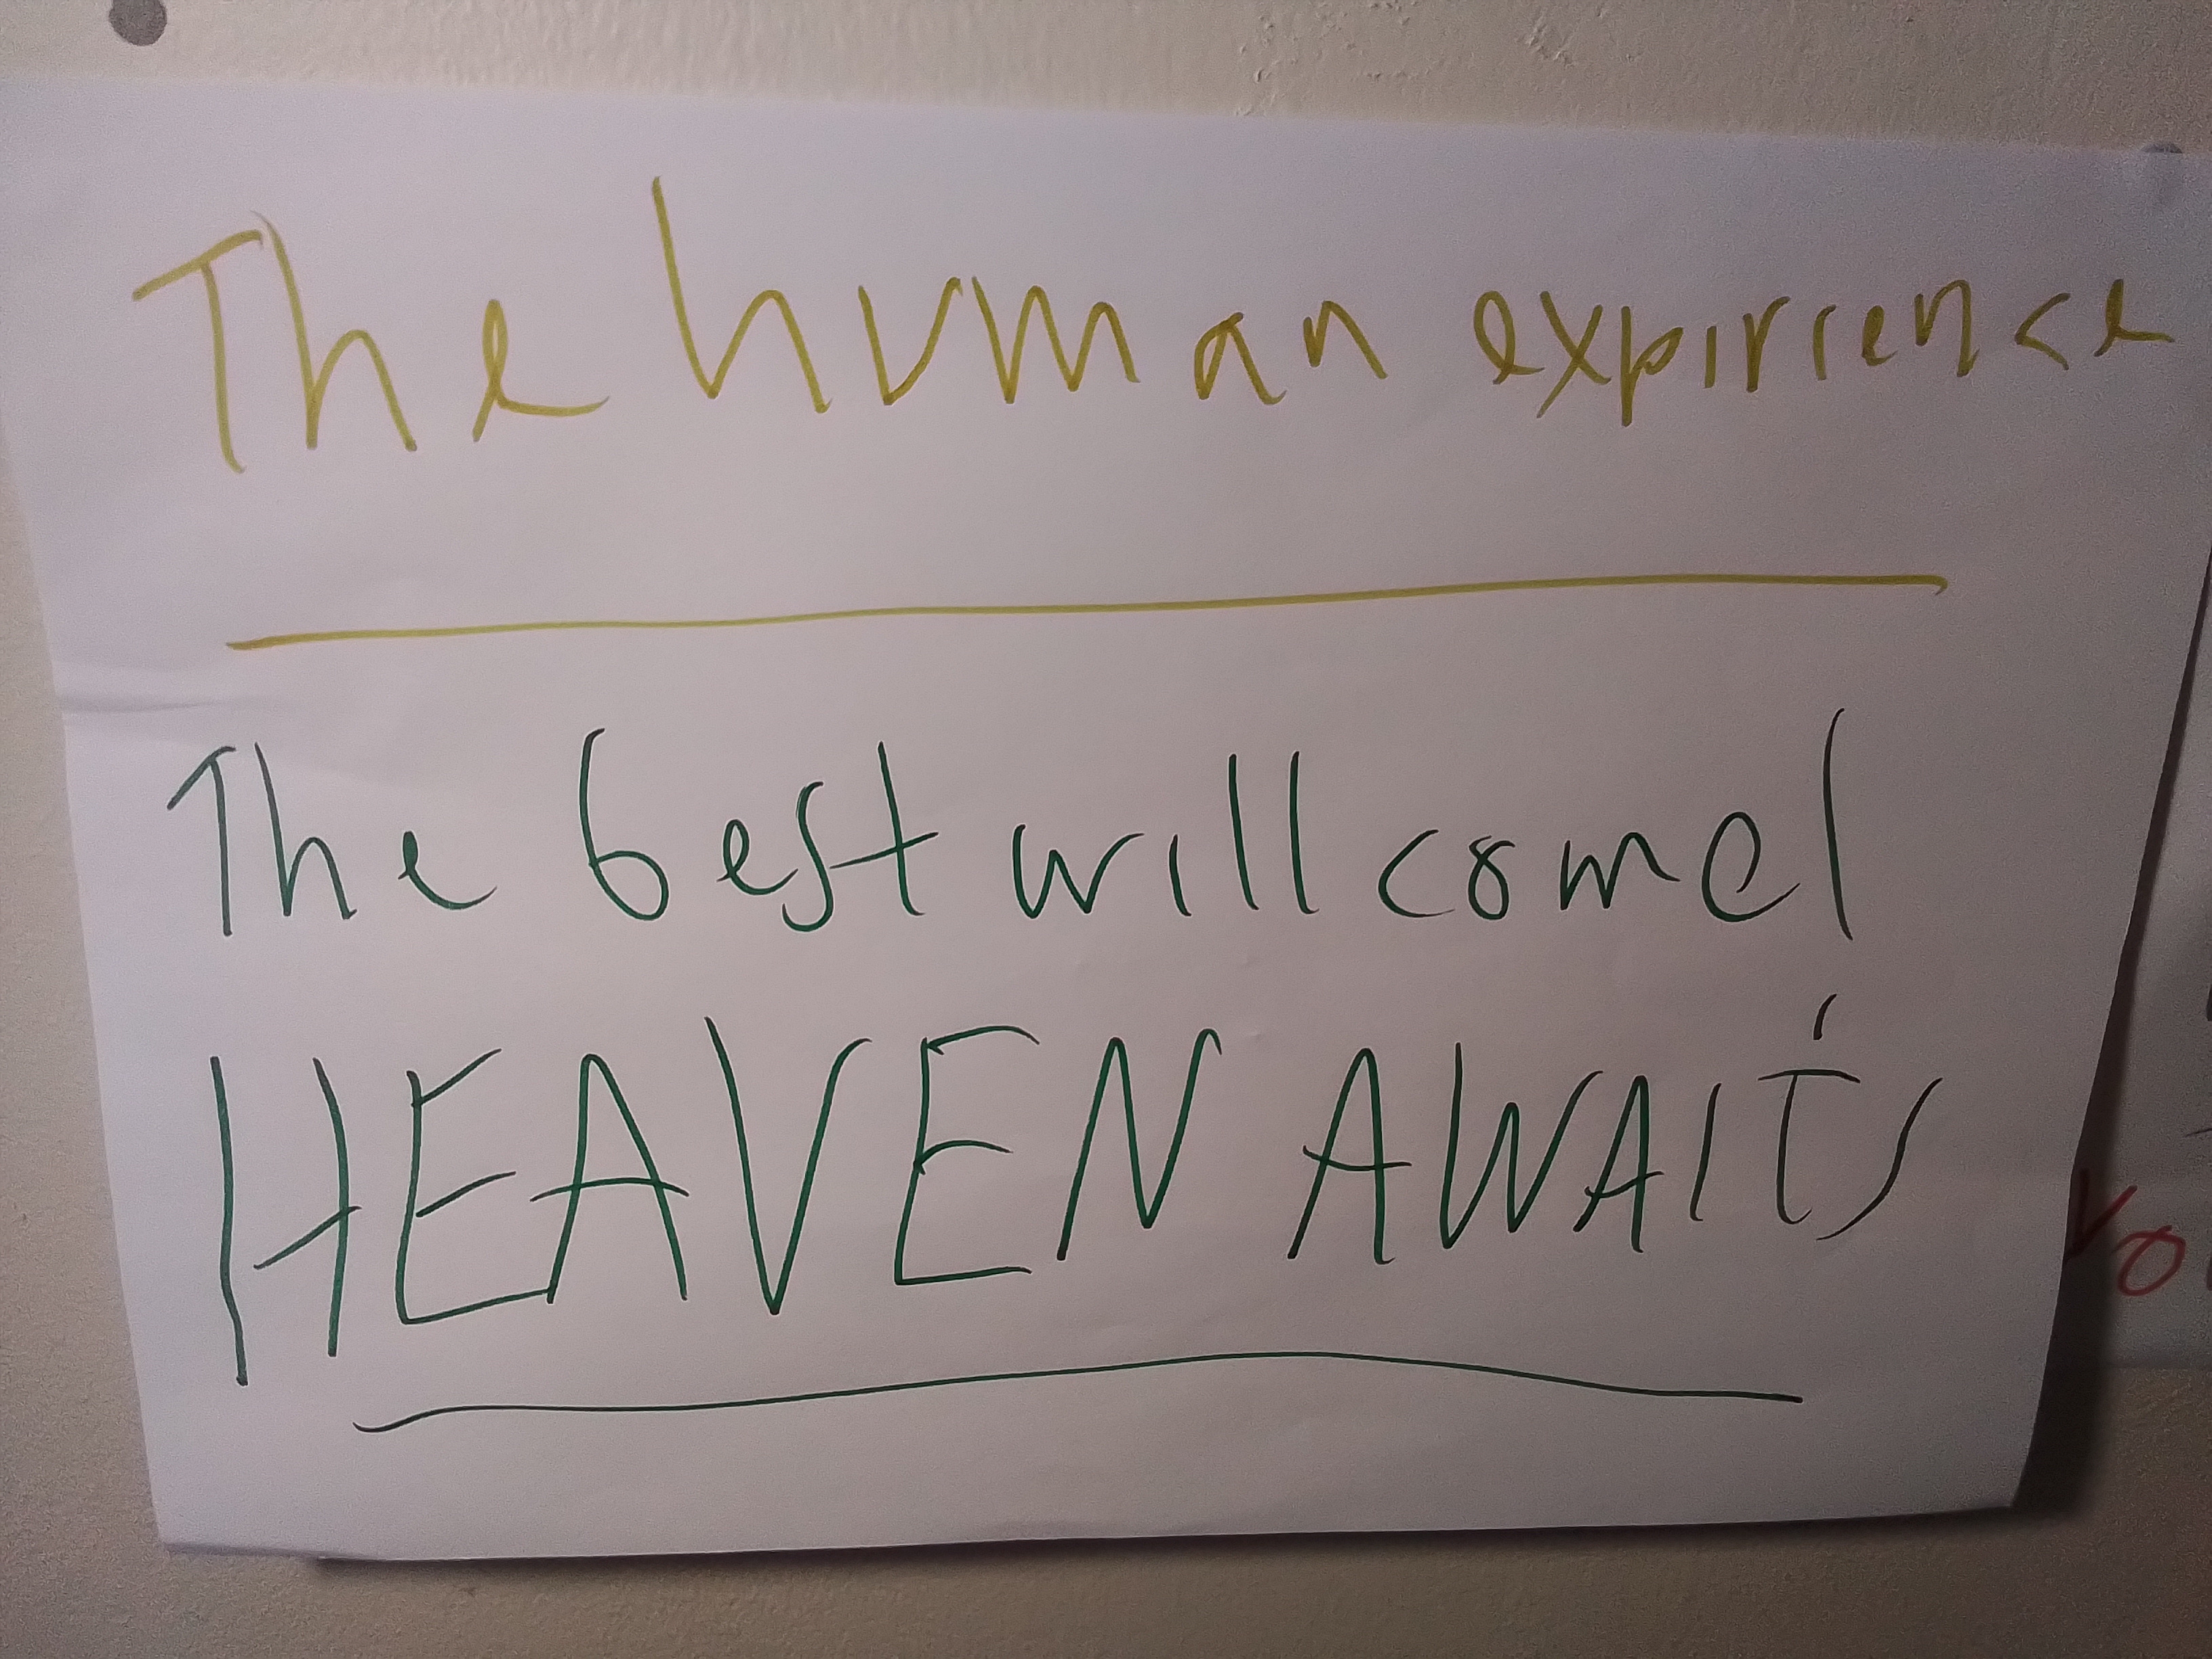 The human expirience
The best will come!
HEAVEN AWAITS